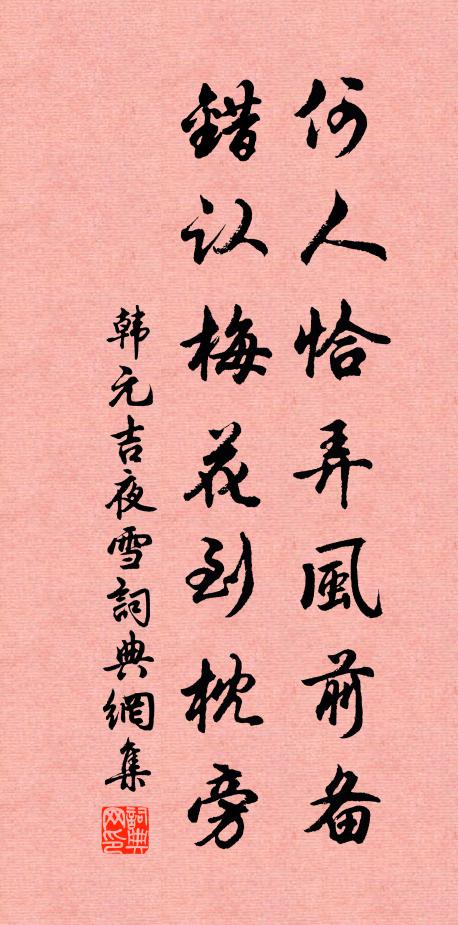 何人恰弄風前备
錯认梅花到枕旁
韩元吉夜雪詞典網集
詞典网印